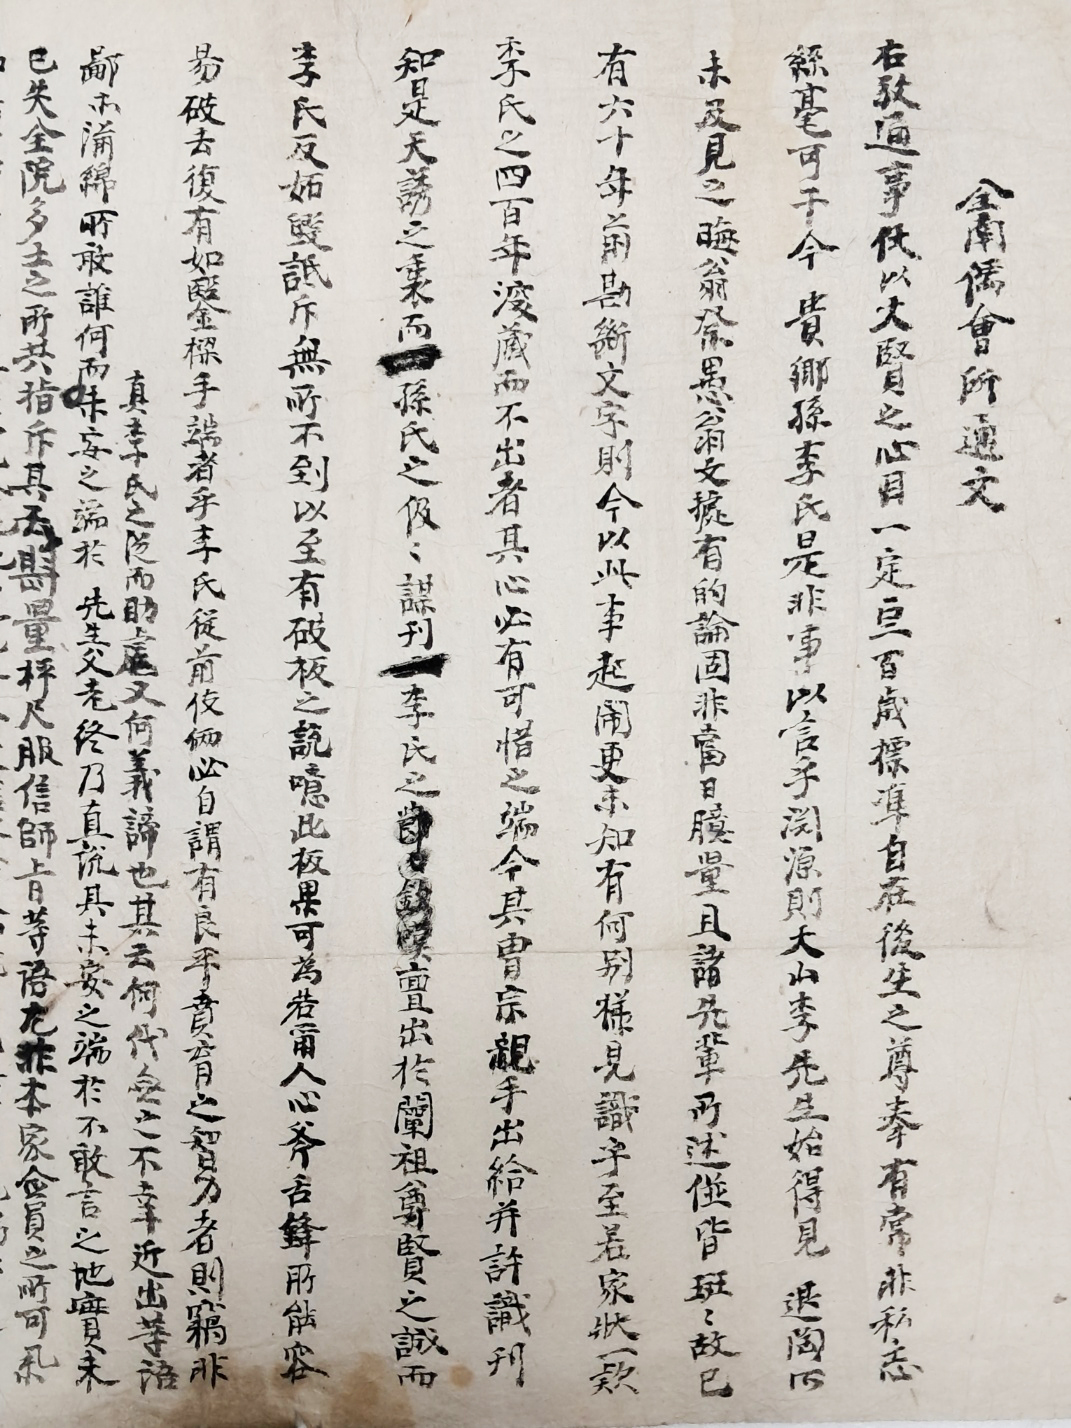 全南儒會所通文
右敬通事伏以大賢之心目一定百歲標準自在後生之尊奉有常非私恣
絲毫可干今 貴鄉孫李氏是非事以言乎淵源則大山李先生始得見 退陶
未及見之晦翁祭愚翁文㨿有的論固非當日臆量且諸先輩所述併皆班〻故已
有六十年前勘斷文字則今以此事起鬧更未知有何別樣見識乎至若家狀一款
李氏之四百年深藏而不出者其心必有可惜之端今其胄宗親手出給并許識刊
知是天誘之衷而孫氏之伋〻謀刊李氏之亶出於闡祖尊賢之誠而
李氏反妬毀詆斥無所不到以至有破板之說噫此板果可為若爾人心斧舌鋒所能容
易破去復有如鑿金樑手端者乎李氏從前伎倆必自謂有良平賁育之智勇者則竊非
真李氏之從而助虐又何義諦也其云何代無之不幸近出等語
鄙等所敢誰何而未妥之端於 先生父老終乃直說其未安之端於不敢言之地實未
已失全院多士之所共指斥其云斟量枰尺服信師旨等語尤非本家僉員之所可